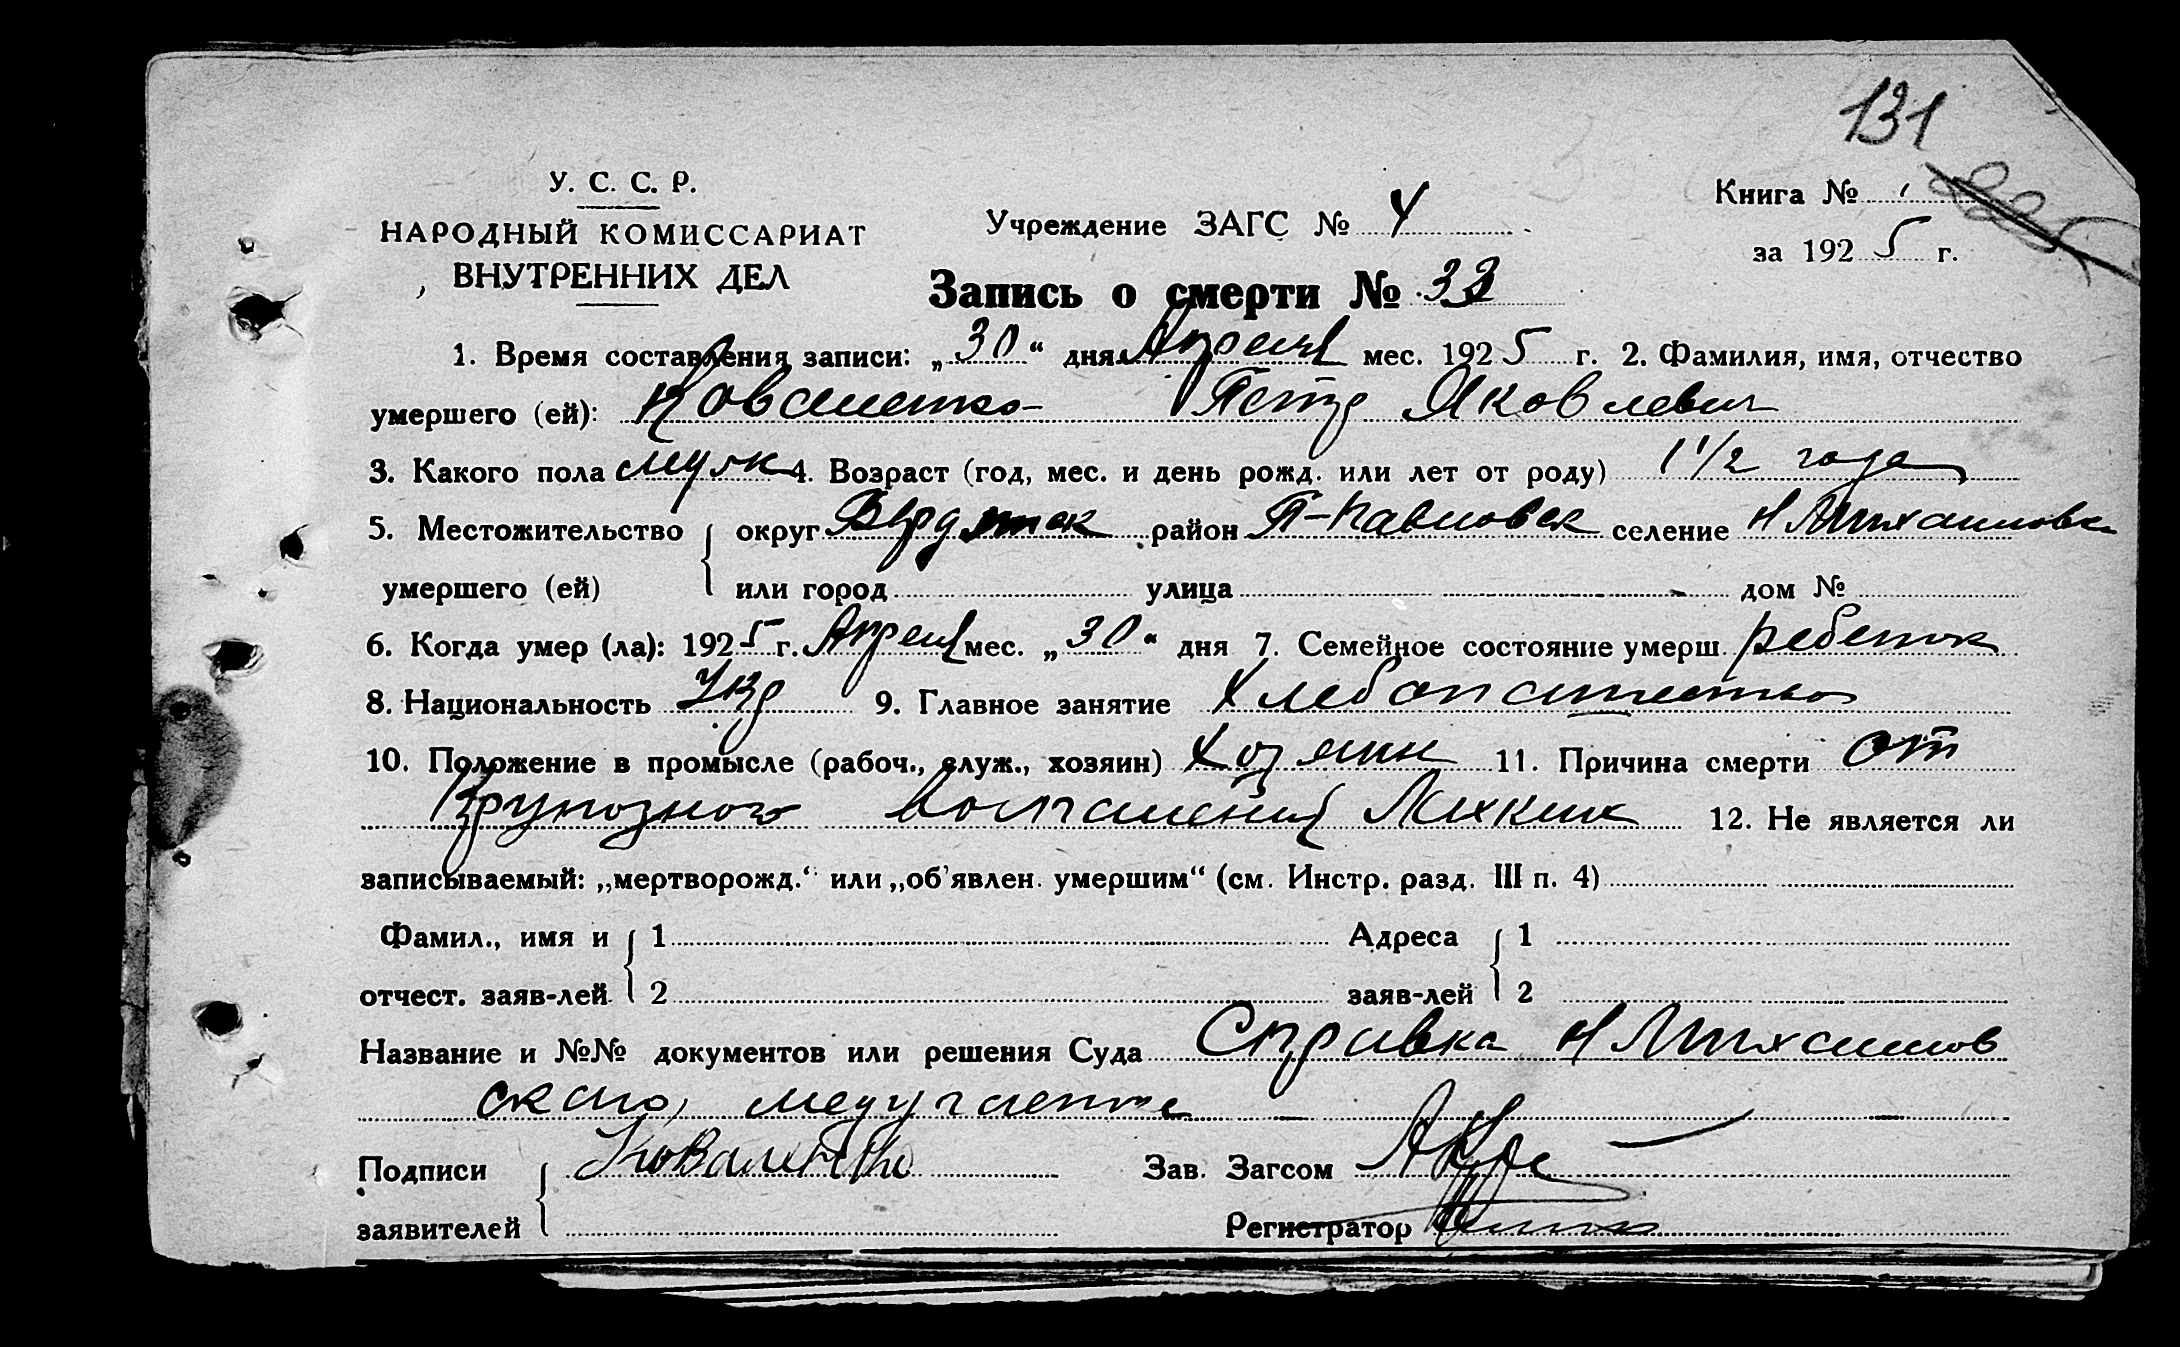 131
У. С. С. Р.
НАРОДНЫЙ КОМИССАРИАТ
ВНУТРЕННИХ ДЕЛ
Учреждение ЗАГС № 4
Книга № 1
за 1925 г.
Запись о смерти № 33
1. Время составления записи: „30“ дня Апреля мес. 1925 г. 2. Фамилия, имя, отчество
умершего (ей): Коваленко Петр Яковлевич
3. Какого пола муж 4. Возраст (год, мес. и день рожд. или лет от роду) 1 1/2 года
5. Местожительство округ район П-Павловск селение Н Михайловка
умершего (ей) или город улица дом №
6. Когда умер (ла): 1925 г. Апреля мес. „30“ дня 7. Семейное состояние умерш. ребенок
8. Национальность Укр 9. Главное занятие Хлебопашество
10. Положение в промысле (рабоч., служ., хозяин) Хозяин 11. Причина смерти от
Крупозного воспаления Лехких 12. Не является ли
записываемый: „мертворожд.“ или „об’явлен. умершим“ (см. Инстр. разд. III п. 4)
Фамил., имя и 1 Адреса 1
отчест. заяв-лей 2 заяв-лей 2
Название и №№ документов или решения Суда Справка Н Михайлов
ского медучастка
Подписи Коваленко Зав. Загсом
заявителей Регистратор